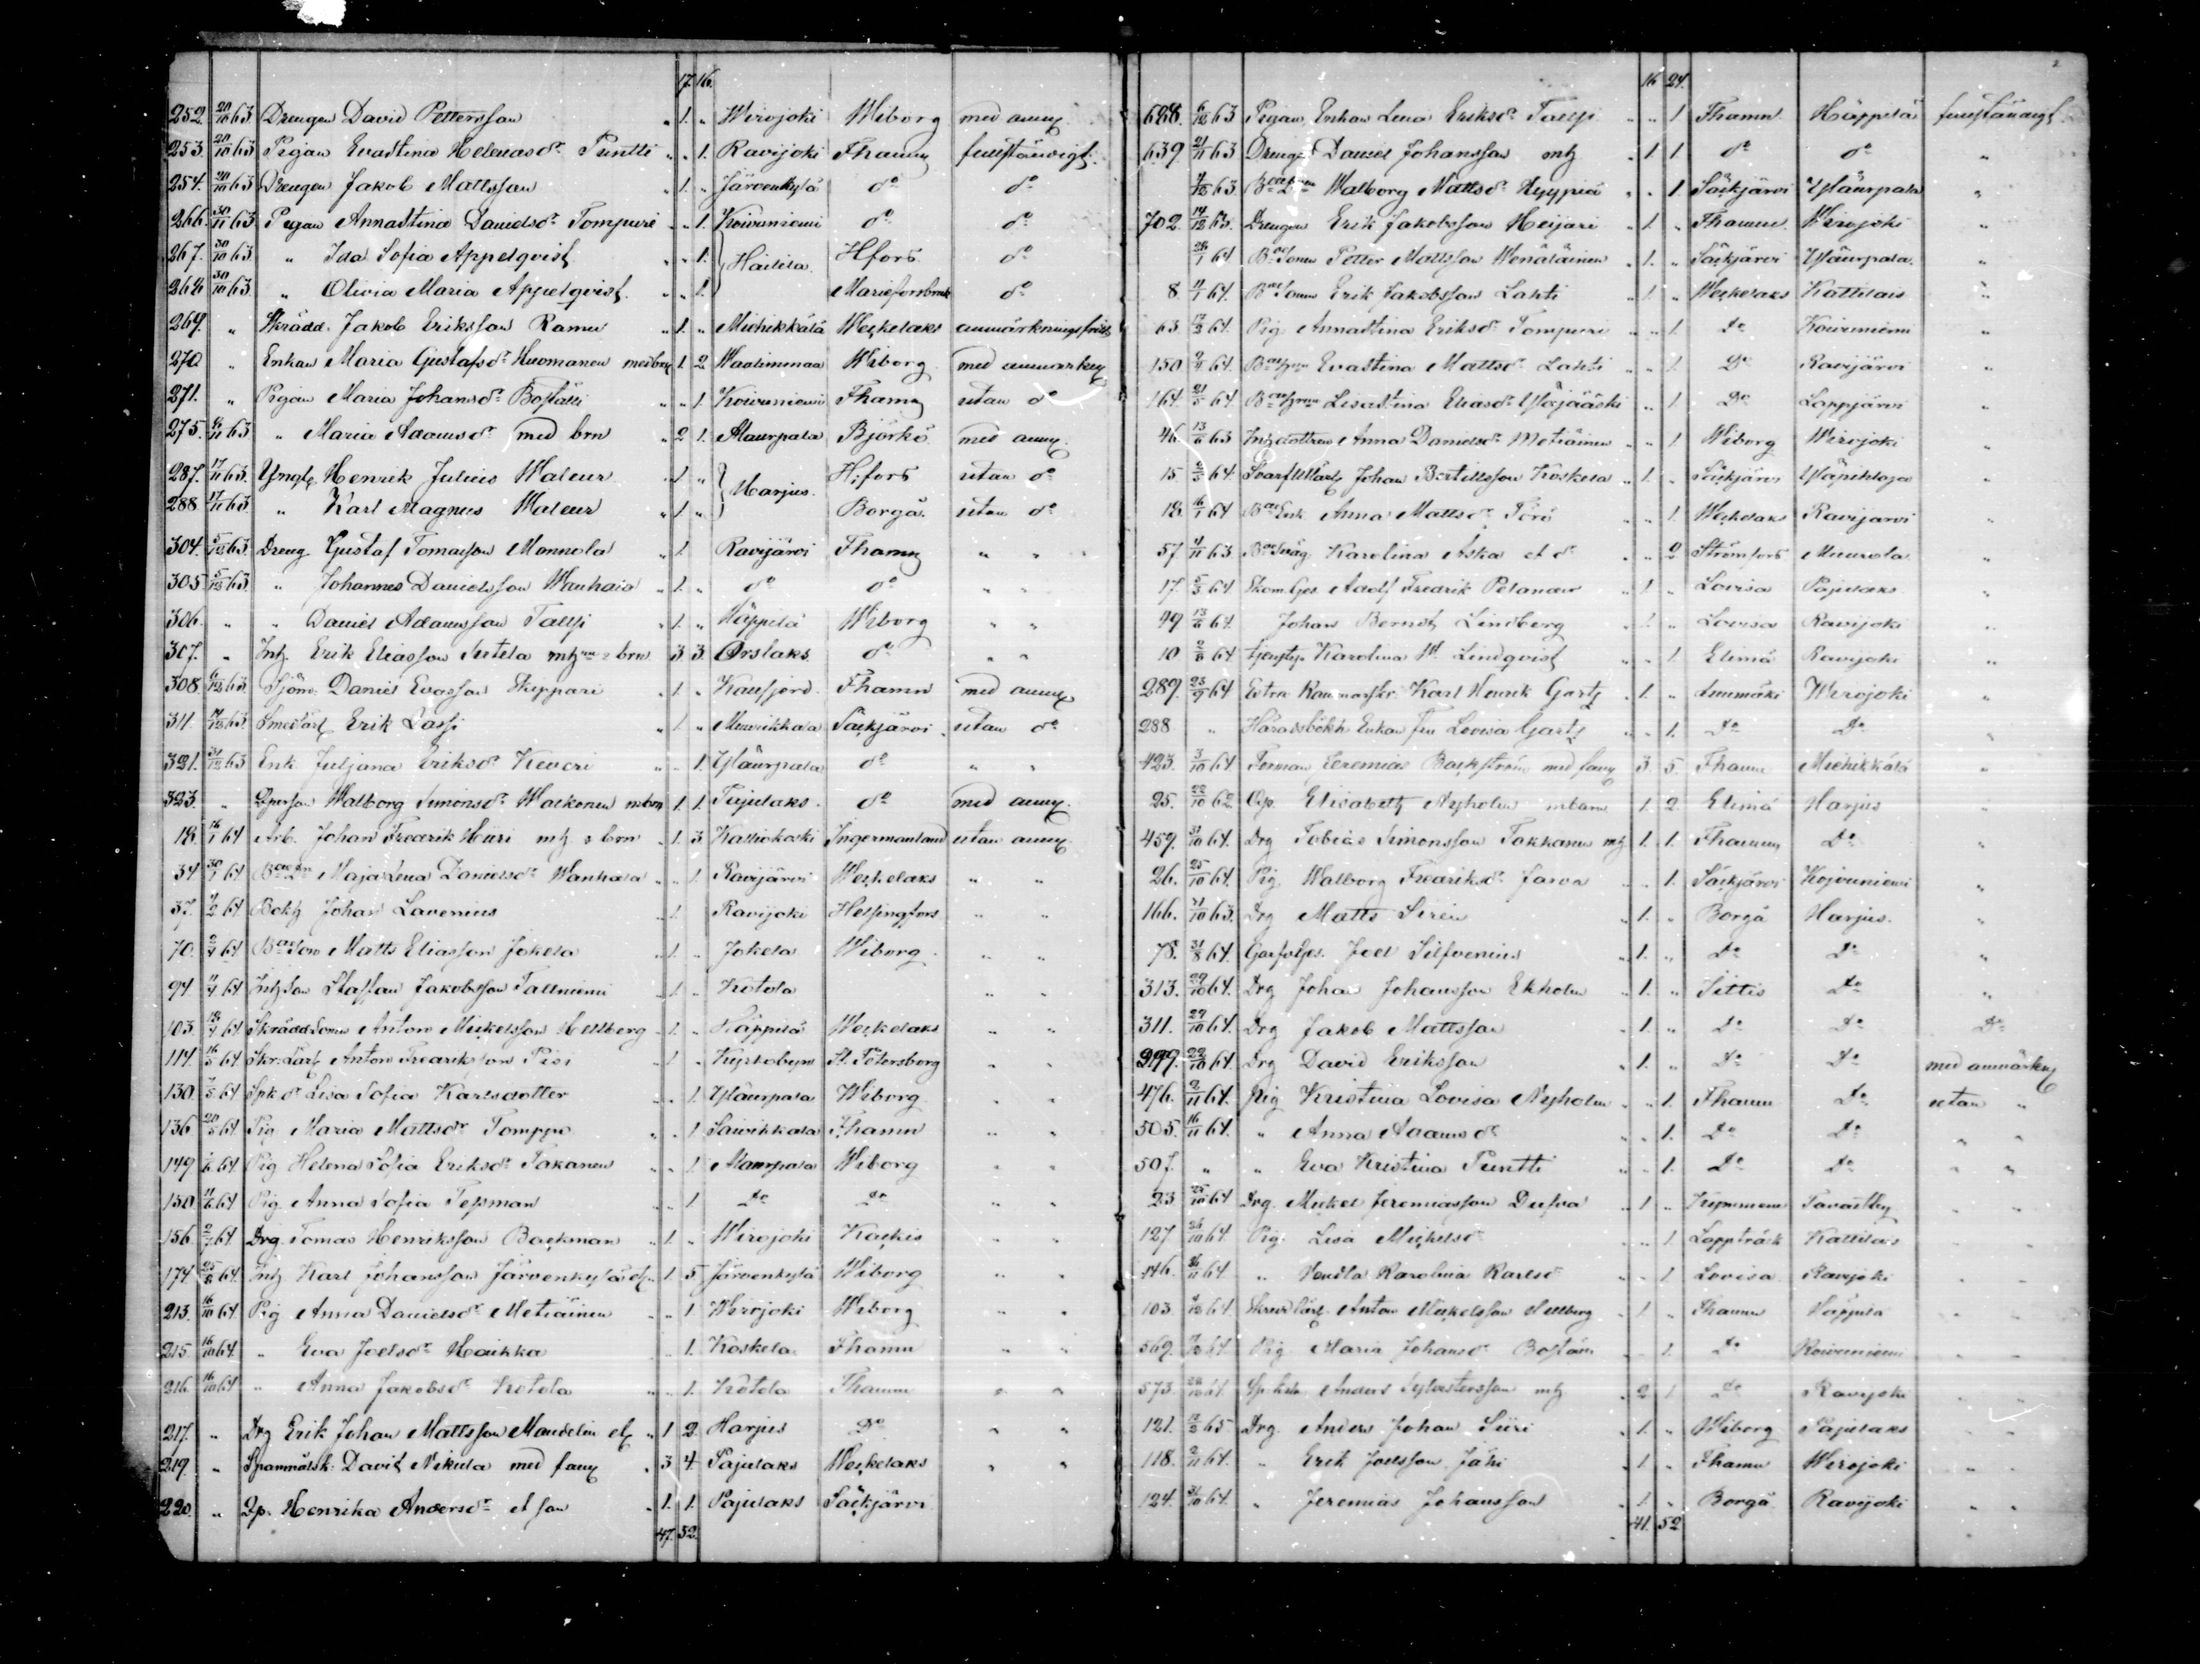 17. 16.
252. 20/10 63. Drengen David Pettersson „ 1. „ Wirojoki Wiborg med anm.
253. 20/10 63 Pigan Evastina Helenasdr Puntti „ „ 1. Ravijoki Fhamn fullständigt.
254. 20/10 63 Drengen Jakob Mattsson „ 1. „ Järvenkylä do do
266. 30/11 63. Pigan Annastina Danielsdr Tompuri „ „ 1. Koivuniemi do do
267. 30/10 63 „ Ida Sofia Appelqvist „ „ 1. Hailila Hfors do
268 30/10 63. „ Olivia Maria Appelqvist. „ „ 1. Marieforsbruk do
269. „ Skrädd. Jakob Eriksson Ramu „ 1. „ Miehikkälä Weckelaks anmärkningsfritt
270 „ Enkan Maria Gustafsdr Huomanen med brn 1. 2. Waalimmaa Wiborg med anmärkn
271. „ Pigan Maria Johansdr „ „ 1. Koivuniemi Fhamn utan do
275. 63 „ Maria Adamsdr med brn „ 2 1. Maurpala Björkö med anm.
287. 17/11 63. Yngl. Henrik Julius „ 1 „ Harjus. H.fors utan do
288 17/11 63. „ Karl Magnus „ 1 „ Borgå. utan do
304. 5/12 63. Dreng Gustaf Tomasson Mannola „ 1 Ravijärvi Fhamn „ „
305 5/12 63. „ Johannes Danielsson Wanhala „ 1. „ do do „ „
306. „ „ Daniel Adamsson Talsi „ 1. „ Häppilä Wiborg „ „
307. „ Inh. Erik Eliasson Sutela mh o brn 3 3. Orslaks do „ „
308. 63. Sjöm. Daniel Evasson Skippari „ 1 „ Kausjord Fhamn med anm
311. 63 Smedlärl Erik Lassi „ 1 „ Muurikkala Säckjärvi utan do
321. 31/12 63 Enk. Juljana Eriksdr Keveri „ „ 1. Yläurpala do „ „
323. „ Qperson Walborg Simonsdr Walkonen m brn 1. 1. Pajulaks do med anm.
18. 16/1 64 Arb. Johan Fredrik Hiiri mh o brn „ 1. 3 Kalliokoski Ingermanland utan anm.
34 30/1 64 Maja Lena Danielsdr Wanhala „ „ 1 Ravijärvi Weckelaks „ „
37. 64 Bokh Johan Lavenius „ 1. Ravijoki Helsingfors „ „
70. 64 Bdeson Matts Eliasson Jokela „ 1. „ Jokela Wiborg „ „
94 64 Inhson Staffan Jakobsson Tallniemi „ 1. „ Kotola „ „
103. 18/4 64 Skräddsonen Anton Mickelsson Hellberg „ 1. „ Häppilä Weckelaks „ „
114. 16/5 64 Skr.lärl Anton Fredriksson Pisi „ 1 „ Kurkobyn St. Petersborg „ „
130. 64 Lisa Sofia Karlsdotter „ „ 1 Yläurpala Wiborg „ „
136 20/5 64. Pig Maria Mattsdr Tomppo „ „ 1 Saivikkala Fhamn „ „
149 64 Pig Helena Sofia Eriksdr Takanen „ „ 1. Maurpala Wiborg „ „
150 64 Pig Anna Sofia Tessman „ „ 1 do do „ „
156. 64. Drg Tomas Henriksson Backman „ 1. „ Wirojoki Kackis „ „
174 25/8 64. Inh Karl Johansson Järvenkylä „ 1. 5 Järvenkylä Wiborg „ „
213. 16/10 64 Pig Anna Danielsdr Metiäinen „ „ 1 Wirojoki Wiborg „ „
215. 16/10 64. „ Eva Joelsdr Haikka „ „ 1. Koskela Fhamn „ „
216. 16/10 64 „ Anna Jakobsdr Kotola „ „ 1. Kotola Fhamn „ „
217. „ Drg Erik Johan Mattsson Mandelin „ 1 2. Harjus Do „ „
219. „ David Nikula med famn „ 3 4. Pajulaks Weckelaks „ „
220. „ Qp. Henrika Andersdr et son „ 1. 1. Pajulaks Säckjärvi
47. 52.
16 24.
688. 6/12 63 Pigan Enkan Lena Eriksdr Talsi „ „ 1 Fhamn Häppilä fullständigt
639. 21/11 63 Drengen Daniel Johansson mh „ 1. 1. do do „
63 Walborg Mattsdr Hyypiä „ „ 1 Säckjärvi Yläurpala „
702. 14/12 63. Drengen Erik Jakobsson Heijari „ 1. „ Fhamn Wirojoki „
64 Bdesonen Petter Mattsson Wenäläinen „ 1. „ Säckjärvi Yläurpala. „
8. 64. Bdesonen Erik Jakobsson Lahti „ 1. „ Weckelaks Kattilais „
63. 64. Pig Annastina Eriksdr Tompuri „ „ 1. Do Koivuniemi „
150 64. Evastina Mattsdr Lahti „ „ 1. Do Ravijärvi „
164. 21/5 64 Lisastina Eliasdr Yläjääski „ „ 1. Do Lappjärvi „
46. 13/6 63 Inhdottren Anna Danielsdr Metiäinen „ „ 1 Wiborg Wirojoki „
15. 64. Johan Bertillsson Koskela „ 1. „ Säckjärvi Yläpihlaja „
18. 16/1 64 Anna Mattsdr Törö „ „ 1. Weckelaks Ravijärvi „
57 63 Karolina Aska et dr „ „ 2 Strömfors Muurola „
17. 5/3 64. Skom.Ges. Adolf Fredrik Pelander „ 1. „ Lovisa Pajulaks „
49 13/6 64. Johan Berndt Lindberg „ 1. „ Lovisa Ravijoki „
10 64 Karolina W. Lindqvist „ „ 1 Elimä Ravijoki „
289. 23/9 64 Extra Kammarskr. Karl Henrik Gartz „ 1. „ Anmmäki Wirojoki „
288 „ Häradsbokh Enkan fru Lovisa Gartz „ „ 1. do Do „
423. 3/10 64. Forman Jeremias Backström med famn 3. 5. Fhamn Miehikkälä „
25. 22/10 62 Qvp. Elisabeth Nyholm m barn 1. 2. Elimä Harjus „
459. 31/10 64. Drg Tobias Simonsson Takkanen mh 1. 1. Fhamn Do „
26. 25/10 64. Pig Walborg Fredriksdr Jarva „ „ 1. Säckjärvi Kojvuniemi „
166. 31/10 63. Drg Matts Siren „ 1. „ Borgå Harjus. „
78. 31/8 64. Garfv.Ges. Joel Silfvenius „ 1. „ Do Do „
313. 29/10 64. Drg Johan Johansson Ekholm „ 1. „ Sittis Do „
311. 29/10 64. Drg Jakob Mattsson „ 1. „ Do Do Do
299. 22/10 64. Drg David Eriksson „ 1. „ Do Do med anmärkn
476. 2/11 64. Pig Kristina Lovisa Nyholm „ „ 1. Fhamn Do utan „
505. 16/11 64. „ Anna Adamsdr „ „ 1. Do Do „ „
507. „ „ Eva Kristina Puntti „ „ 1. Do Do „ „
23 25/10 64 Drg. Mickel Jeremiasson Dufva „ 1 „ Kymmene Tavastby „ „
127 26/10 64. Pig. Lisa Mickelsdr „ „ 1. Lappträsk Kattilais „ „
146. 64. „ Vendla Karolina Karlsdr „ „ 1 Lovisa Ravijoki „ „
103. 64. Skrädlärl. Anton Mickelsson Hellberg „ 1 „ Fhamn Häppilä „ „
569. 64 Pig Maria Johansdr „ „ 1. Do Koivuniemi „ „
573. 64. Anders Sylvestersson mh „ 2 1 Do Ravijoki „ „
121. 65 Drg. Anders Johan Siiri „ 1. „ Wiborg Pajulaks „ „
118. 64. „ Erik Joelsson Jähi „ 1 „ Fhamn Wirojoki „ „
124. 31/10 64. „ Jeremias Johansson „ 1. „ Borgå Ravijoki „ „
41. 52